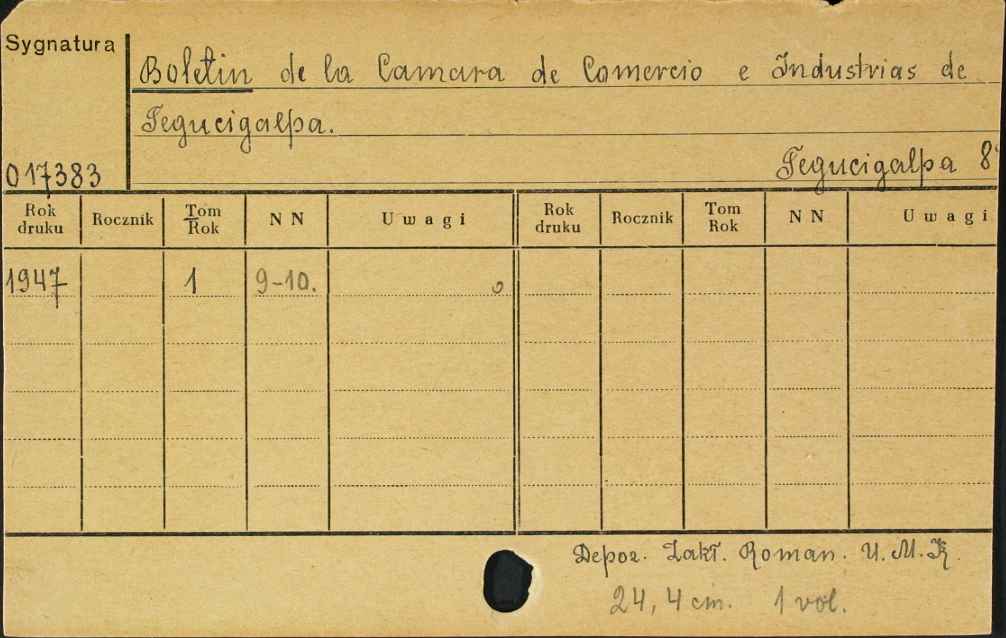 Sygnatura
Boletin de la Camara de Comercio e Industrias de
Tegucigalpa.
017383
Tegucigalpa 8°
Rok druku Rocznik Tom Rok N N Uwagi Rok druku Rocznik Tom Rok N N Uwagi
1947 1 9-10.
Depoz. Zakł. Roman. U.M.K.
24,4 cm. 1 vol.